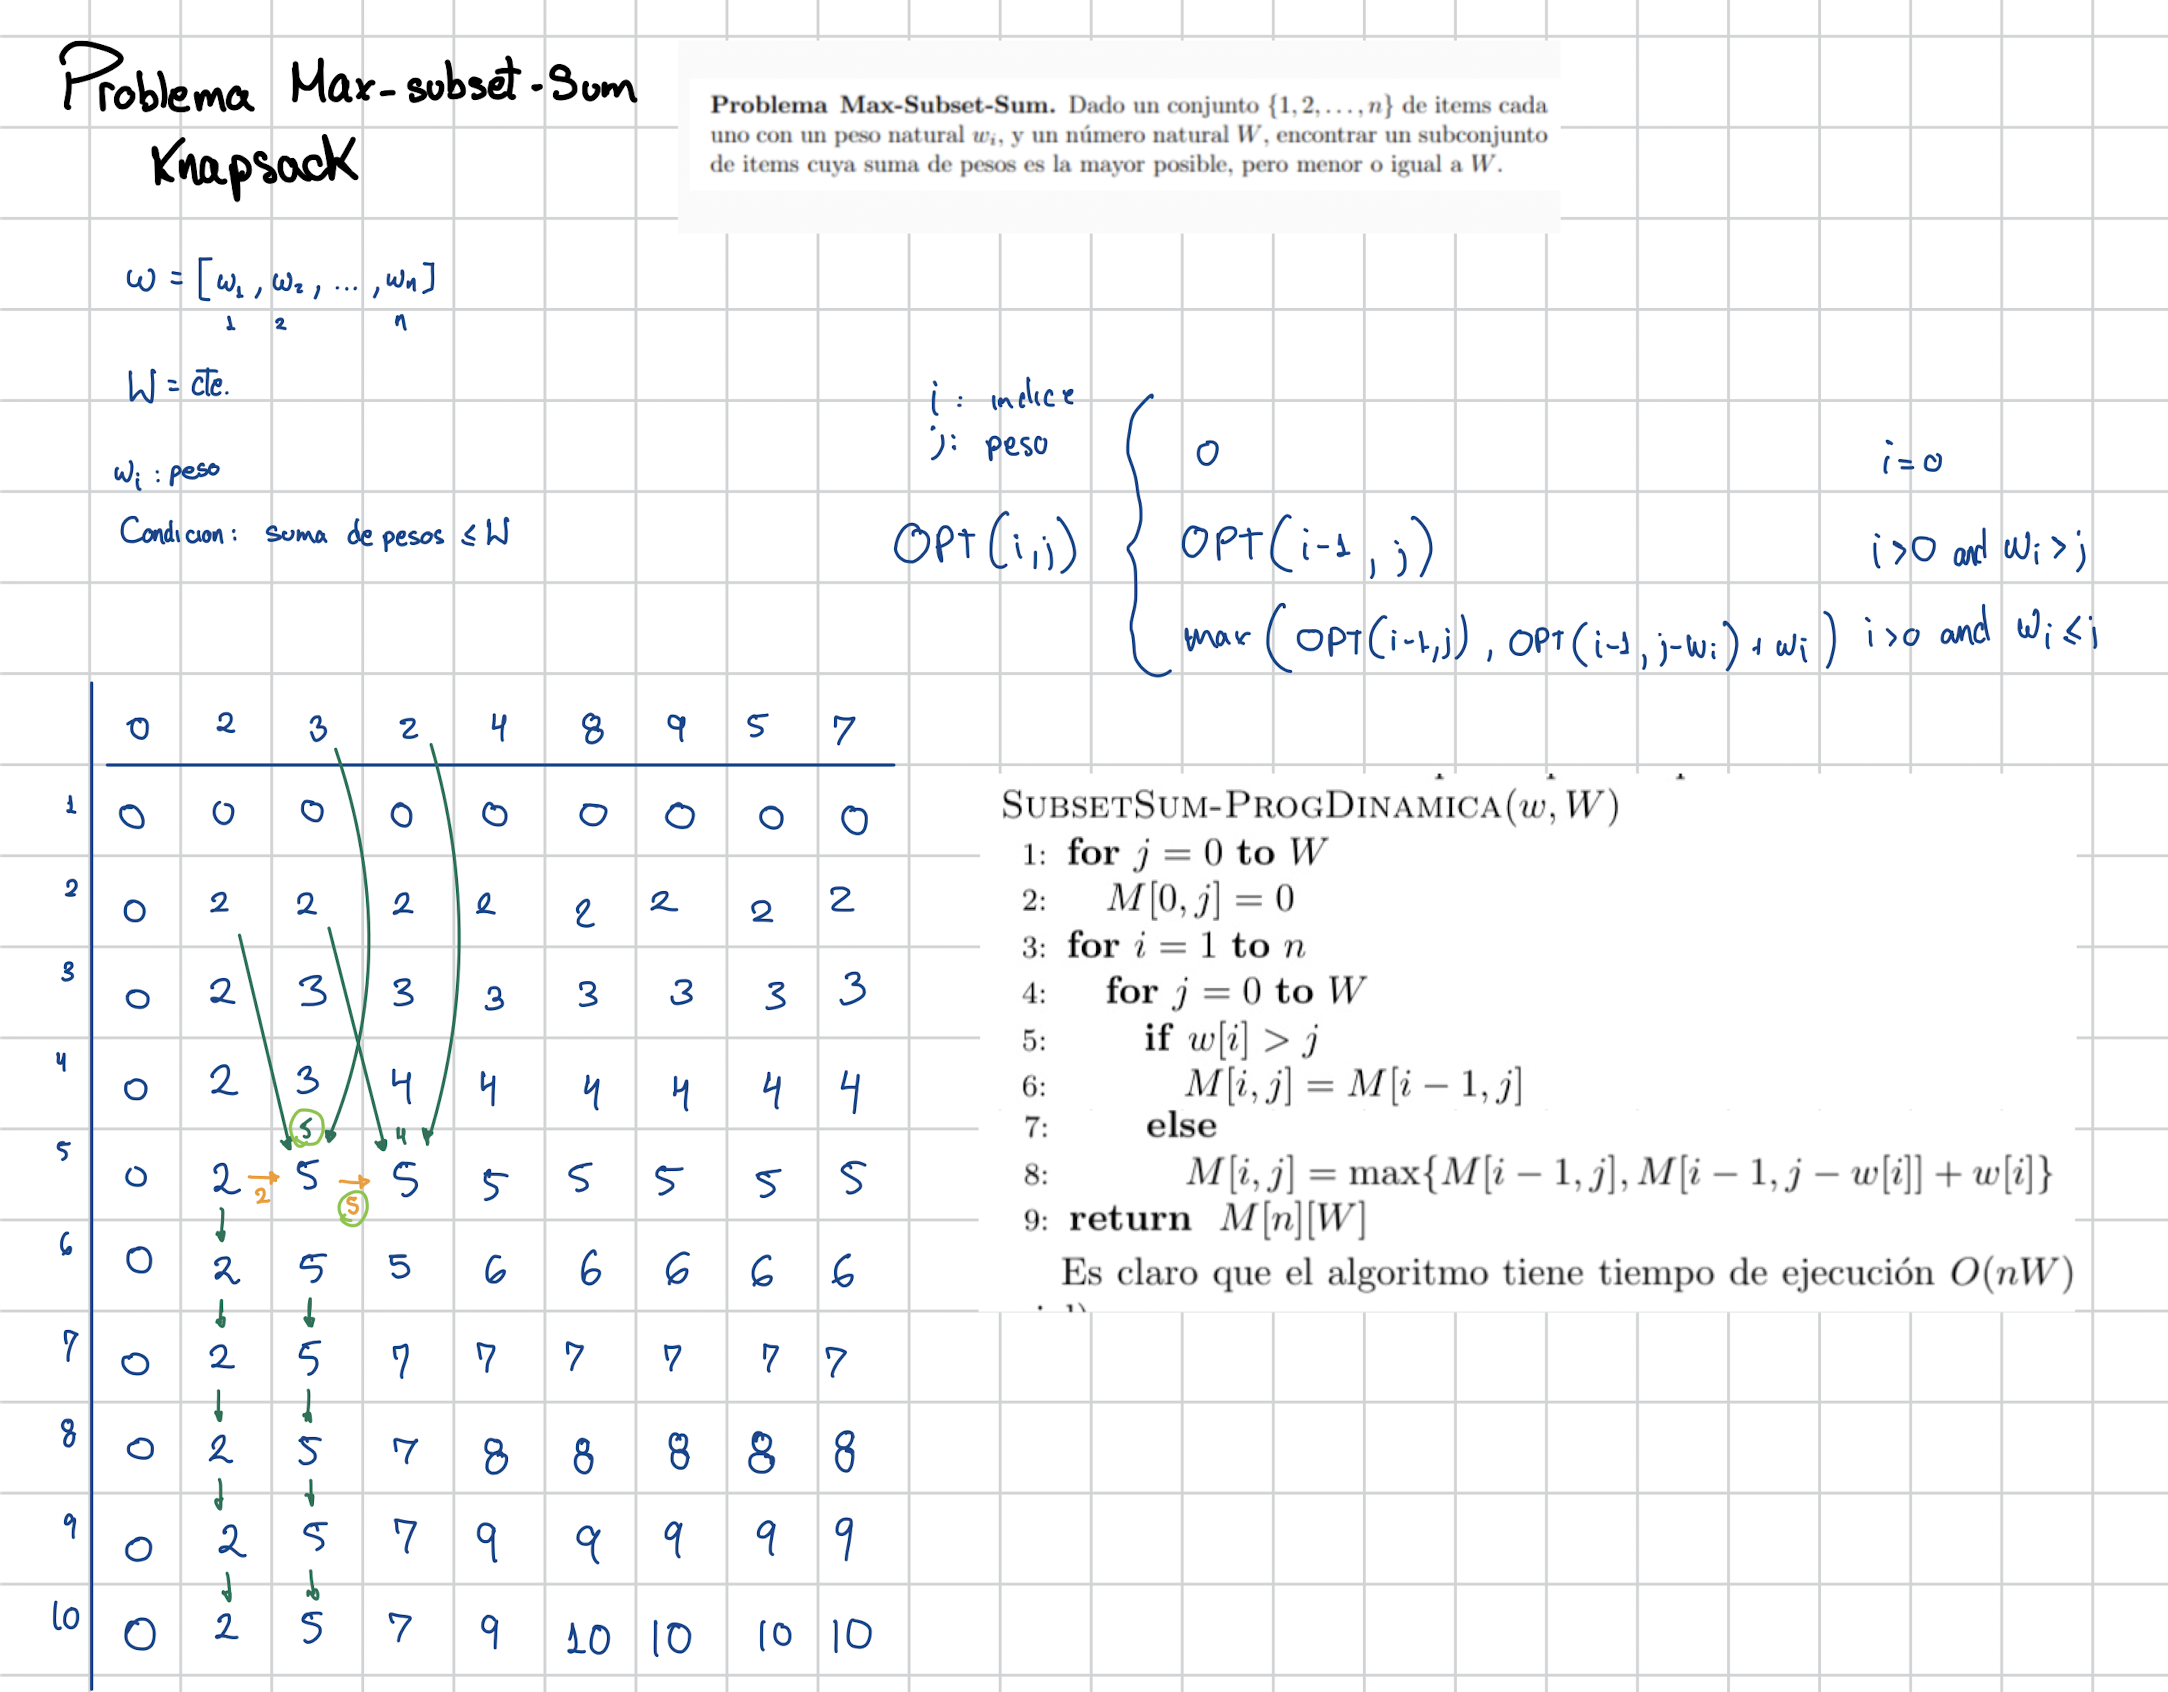 Problema Max-subset-Sum
Knapsack
Problema Max-Subset-Sum. Dado un conjunto {1, 2, . . . , n} de items cada
uno con un peso natural wᵢ, y un número natural W, encontrar un subconjunto
de items cuya suma de pesos es la mayor posible, pero menor o igual a W.
ω = [ω₁, ω₂, ..., ωn]
1 2 n
W = cte.
wᵢ : peso
Condicion: suma de pesos ≤ W
i : indice
j: peso
OPT(i,j)
0 i=0
OPT(i-1, j) i>0 and wᵢ > j
max (OPT(i-1,j), OPT(i-1, j-wᵢ) + wᵢ) i>0 and wᵢ ≤ j
0 2 3 2 4 8 9 5 7
1 0 0 0 0 0 0 0 0 0
2 0 2 2 2 2 2 2 2 2
3 0 2 3 3 3 3 3 3 3
4 0 2 3 4 4 4 4 4 4
5 4
5 0 2 5 5 5 5 5 5 5
2 5
6 0 2 5 5 6 6 6 6 6
7 0 2 5 7 7 7 7 7 7
8 0 2 5 7 8 8 8 8 8
9 0 2 5 7 9 9 9 9 9
10 0 2 5 7 9 10 10 10 10
SUBSETSUM-PROGDINAMICA(w, W)
1: for j = 0 to W
2: M[0, j] = 0
3: for i = 1 to n
4: for j = 0 to W
5: if w[i] > j
6: M[i, j] = M[i − 1, j]
7: else
8: M[i, j] = max{M[i − 1, j], M[i − 1, j − w[i]] + w[i]}
9: return M[n][W]
Es claro que el algoritmo tiene tiempo de ejecución O(nW)